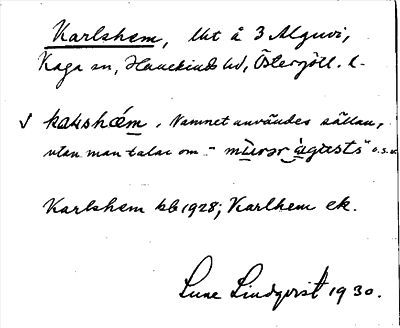 Karlshem, lht å 3 Alguvi,
Kaga sn, Hanekinds hd, Östergötl. l.
√ kaʟshǽm. Namnet användes sällan,
utan man talar om - "mùrər àgusts" o.s.v.
Karlshem kb 1928; Karlhem ek.
Sune Lindqvist 1930.